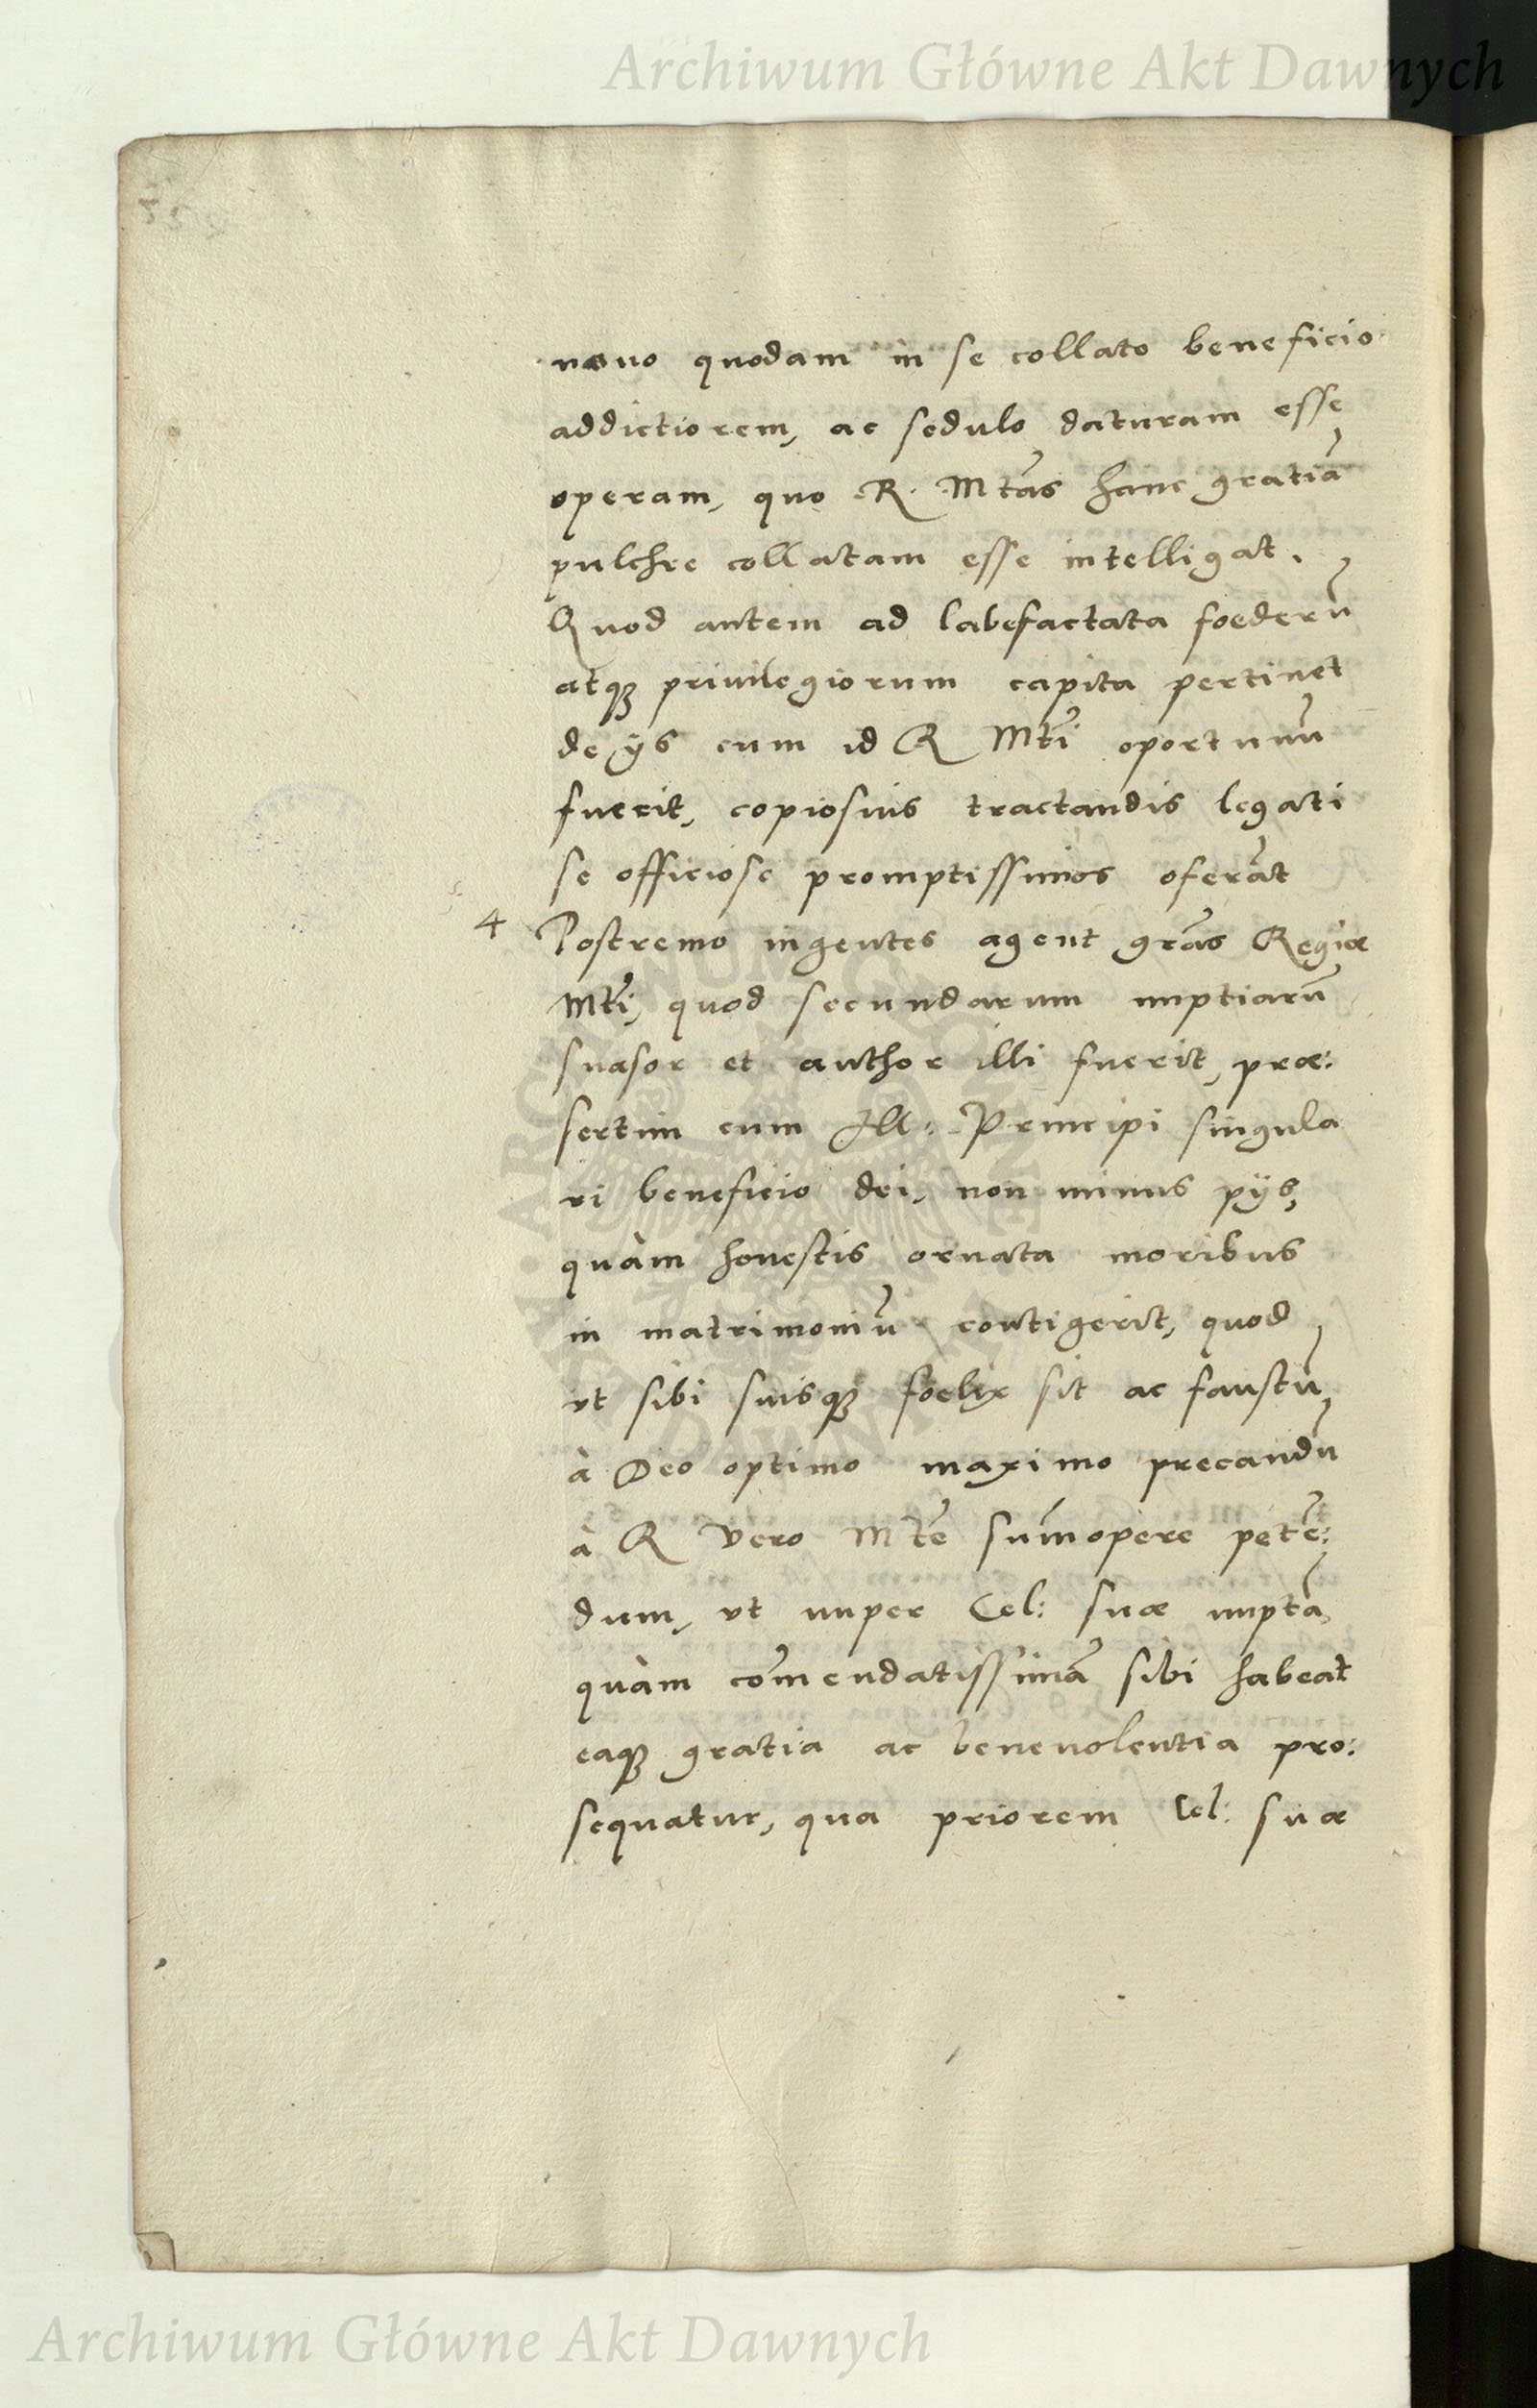 Archiwum Główne Akt Dawnych
nouo quodam in se collato beneficio
addictiorem, ac sedulo daturam esse
operam, quo R. Mtas hanc gratiā
pulchre collatam esse intelligat.
Quod autem ad labefactata foederū
atq; priuilegiorum capita pertinet
de ijs cum id R Mti oportunū
fuerit, copiosius tractandis legati
se officiose promptissimos oferāt
4 Postremo ingentes agent grās Regiæ
Mti, quod secundarum nuptiarū
suasor et author illi fuerit, præ:
sertim cum Ill: Principi singula
ri beneficio dei, non minus pijs,
quàm honestis ornata moribus
in matrimoniū contigerit, quod
vt sibi suisq; foelix sit ac faustū
à Deo optimo maximo precandū
à R vero Mte sum̄opere petē:
dum, vt nuper Cel: suæ nuptā
quàm com̄endatissimā sibi habeat
eaq; gratia ac beneuolentia pro:
sequatur, qua priorem Cel: suæ
Archiwum Główne Akt Dawnych